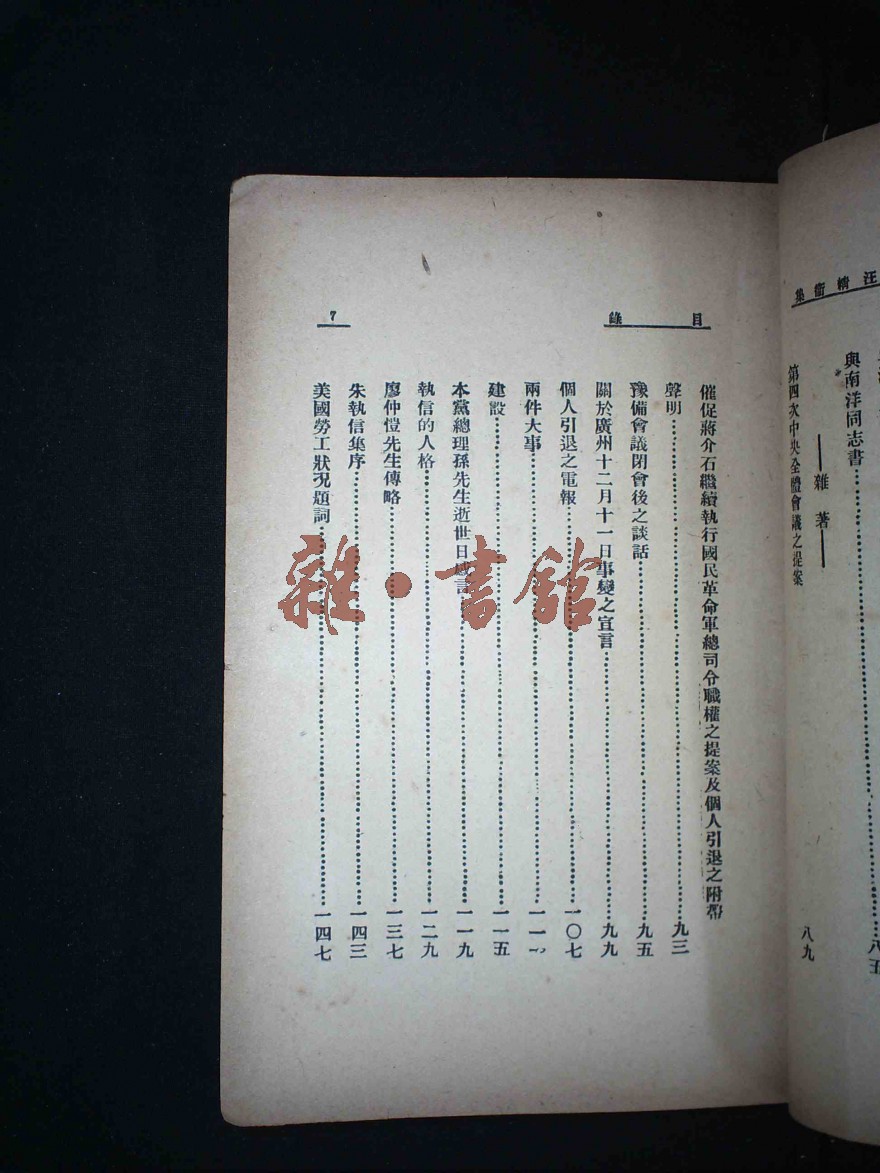 汪精衞集
與南洋同志書……八五
——雜著——
第四次中央全體會議之提案 八九
目錄
7
催促蔣介石繼續執行國民革命軍總司令職權之提案及個人引退之附帶
聲明……九三
豫備會議閉會後之談話……九五
關於廣州十二月十一日事變之宣言……九九
個人引退之電報……一〇七
兩件大事……一一
建設……一一五
本黨總理孫先生逝世日感言……一一九
執信的人格……一二九
廖仲愷先生傳略……一三七
朱執信集序……一四三
美國勞工狀况題詞……一四七
雜·書館